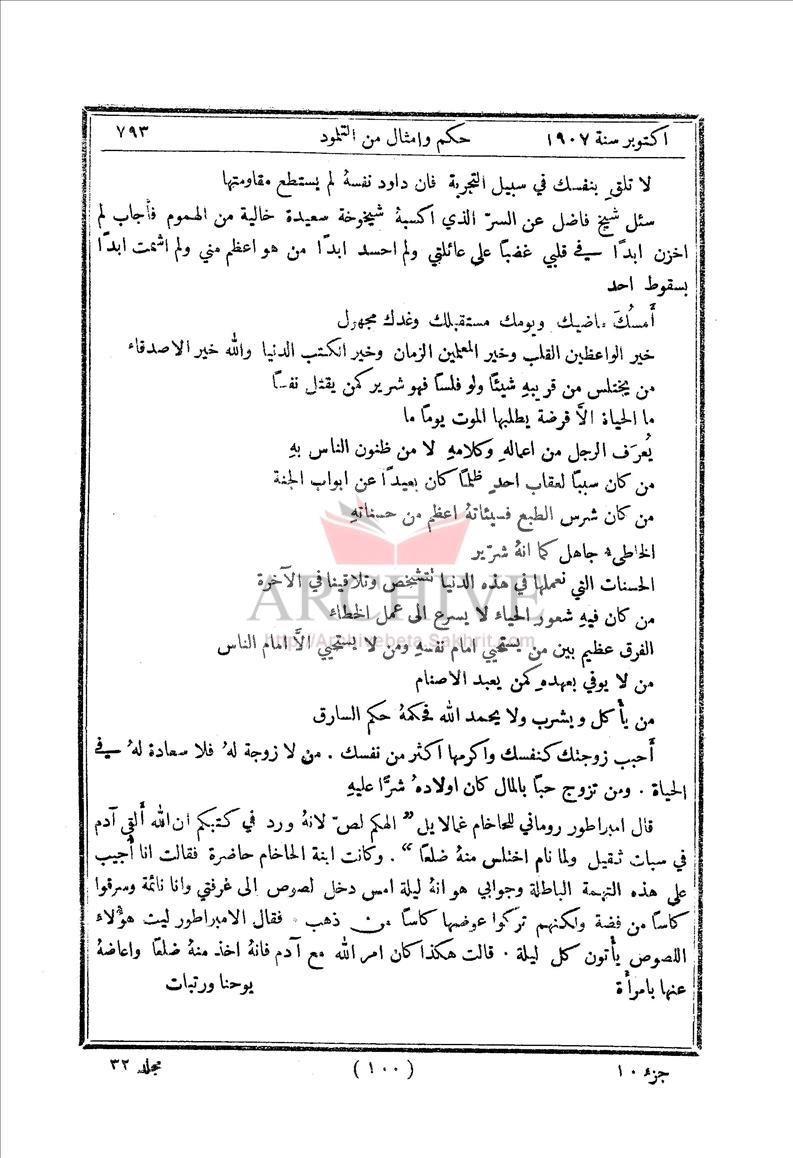 اكتوبر سنة ١٩٠٧ حكم وامثال من التلمود ٧٩٣
لا تلقِ بنفسك في سبيل التجربة فان داود نفسهُ لم يستطع مقاومتها
سئل شيخ فاضل عن السرّ الذي اكسبهُ شيخوخة سعيدة خالية من الهموم فأجاب لم
اخزن ابدًا في قلبي غضبًا على عائلتي ولم احسد ابدًا من هو اعظم مني ولم اشمت ابدًا
بسقوط احد
أَمسُكَ ماضيك ويومك مستقبلك وغدك مجهول
خير الواعظين القلب وخير المعلمين الزمان وخير الكتب الدنيا والله خير الاصدقاء
من يختلس من قريبهِ شيئًا ولو فلسًا فهو شرير كمن يقتل نفسًا
ما الحياة الاَّ قرضة يطلبها الموت يومًا ما
يُعرَف الرجل من اعمالهِ وكلامهِ لا من ظنون الناس بهِ
من كان سببًا لعقاب احدٍ ظلمًا كان بعيدًا عن ابواب الجنة
من كان شرس الطبع فسيئاتهُ اعظم من حسناتهِ
الخاطىء جاهل كما انهُ شرّير
الحسنات التي نعملها في هذه الدنيا تتشخص وتلاقينا في الآخرة
من كان فيهِ شعور الحياء لا يسرع الى عمل الخطاء
الفرق عظيم بين من يستحيي امام نفسهِ ومن لا يستحيي الاَّ امام الناس
من لا يوفي بعهدهِ كمن يعبد الاصنام
من يأكل ويشرب ولا يحمد الله فحكمهُ حكم السارق
أَحبب زوجتك كنفسك واكرمها اكثر من نفسك . من لا زوجة لهُ فلا سعادة لهُ في
الحياة . ومن تزوج حبًا بالمال كان اولادهُ شرًّا عليهِ
قال امبراطور روماني للحاخام غمالايل ” الهكم لصّ لانهُ ورد في كتبكم ان الله أَلقى آدم
في سبات ثقيل ولما نام اختلس منهُ ضلعًا “ . وكانت ابنة الحاخام حاضرة فقالت انا أُجيب
على هذه التهمة الباطلة وجوابي هو انهُ ليلة امس دخل لصوص الى غرفتي وانا نائمة وسرقوا
كاسًا من فضة ولكنهم تركوا عوضها كاسًا من ذهب . فقال الامبراطور ليت هؤُلاء
اللصوص يأتون كل ليلة . قالت هكذا كان امر الله مع آدم فانهُ اخذ منهُ ضلعًا واعاضهُ
عنها بامرأَة يوحنا ورتبات
جزء ١٠ (١٠٠) مجلد ٣٢
ARCHIVE
http://Archivebeta.Sakhrit.com